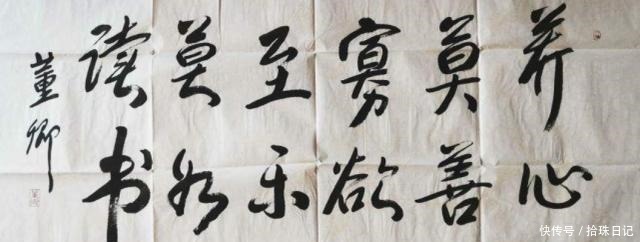 养心
莫善
寡欲
至乐
莫如
读书
董卿
快传号 / 拾珠日记